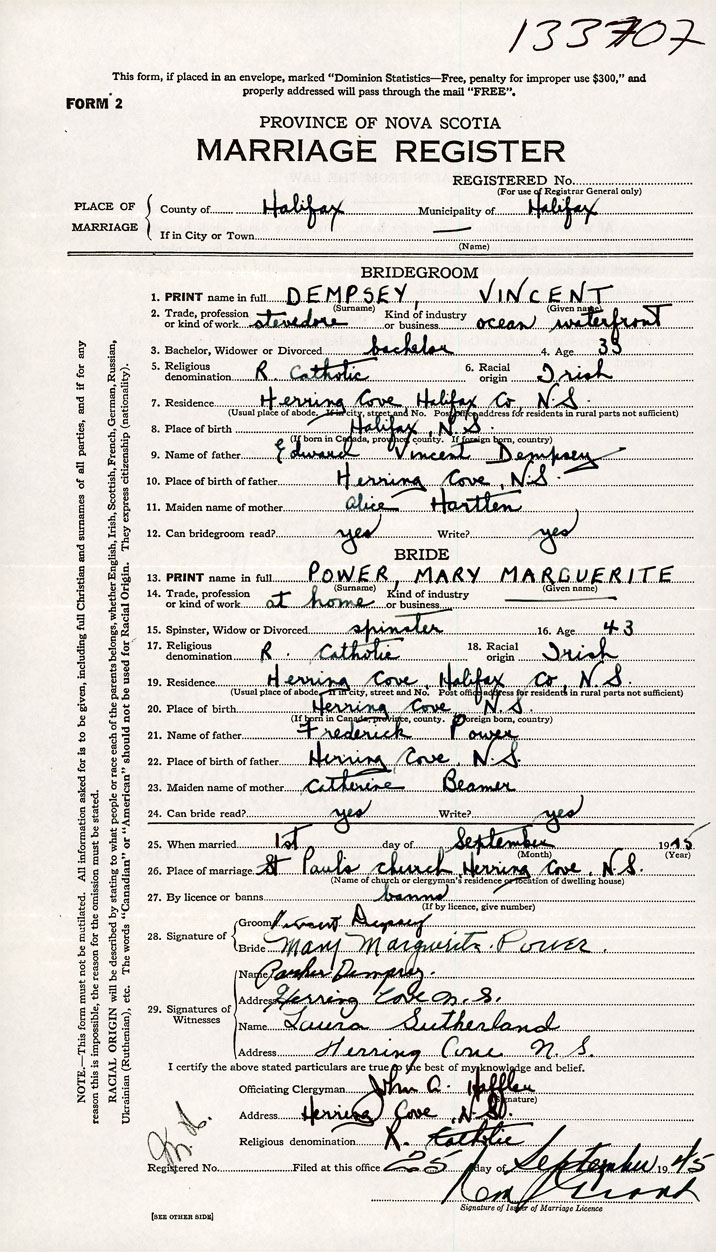 133707
This form, if placed in an envelope, marked "Dominion Statistics—Free, penalty for improper use $300," and
properly addressed will pass through the mail "FREE".
FORM 2
PROVINCE OF NOVA SCOTIA
MARRIAGE REGISTER
REGISTERED No.
(For use of Registrar General only)
PLACE OF MARRIAGE
County of Halifax Municipality of Halifax
If in City or Town —
(Name)
BRIDEGROOM
1. PRINT name in full DEMPSEY, VINCENT
(Surname) (Given name)
2. Trade, profession or kind of work stevedore Kind of industry or business ocean waterfront
3. Bachelor, Widower or Divorced bachelor 4. Age 33
5. Religious denomination R. Catholic 6. Racial origin Irish
7. Residence Herring Cove Halifax Co, N.S.
(Usual place of abode. If in city, street and No. Post office address for residents in rural parts not sufficient)
8. Place of birth Halifax, N.S.
(If born in Canada, province, county. If foreign born, country)
9. Name of father Edward Vincent Dempsey
10. Place of birth of father Herring Cove, N.S.
11. Maiden name of mother Alice Hartlen
12. Can bridegroom read? yes Write? yes
BRIDE
13. PRINT name in full POWER, MARY MARGUERITE
(Surname) (Given name)
14. Trade, profession or kind of work at home Kind of industry or business
15. Spinster, Widow or Divorced spinster 16. Age 43
17. Religious denomination R. Catholic 18. Racial origin Irish
19. Residence Herring Cove, Halifax Co, N.S.
(Usual place of abode. If in city, street and No. Post office address for residents in rural parts not sufficient)
20. Place of birth Herring Cove, N.S.
(If born in Canada, province, county. If foreign born, country)
21. Name of father Frederick Power
22. Place of birth of father Herring Cove, N.S.
23. Maiden name of mother Catherine Beamer
24. Can bride read? yes Write? yes
25. When married 1st day of September 1945
(Month) (Year)
26. Place of marriage St Paul's church, Herring Cove, N.S.
(Name of church or clergyman's residence or location of dwelling house)
27. By licence or banns banns
(If by licence, give number)
28. Signature of
Groom Vincent Dempsey
Bride Mary Marguerite Power.
29. Signatures of Witnesses
Name Dempsey.
Address Herring Cove N.S.
Name Laura Sutherland
Address Herring Cove N.S.
I certify the above stated particulars are true to the best of my knowledge and belief.
Officiating Clergyman John A.
(Signature)
Address Herring Cove, N.S.
Religious denomination R. Catholic
Registered No. Filed at this office 25 day of September 1945
Signature of Issuer of Marriage Licence
[SEE OTHER SIDE]
NOTE.—This form must not be mutilated. All information asked for is to be given, including full Christian and surnames of all parties, and if for any
reason this is impossible, the reason for the omission must be stated.
RACIAL ORIGIN will be described by stating to what people or race each of the parents belongs, whether English, Irish, Scottish, French, German, Russian,
Ukrainian (Ruthenian), etc. The words "Canadian" or "American" should not be used for Racial Origin. They express citizenship (nationality).